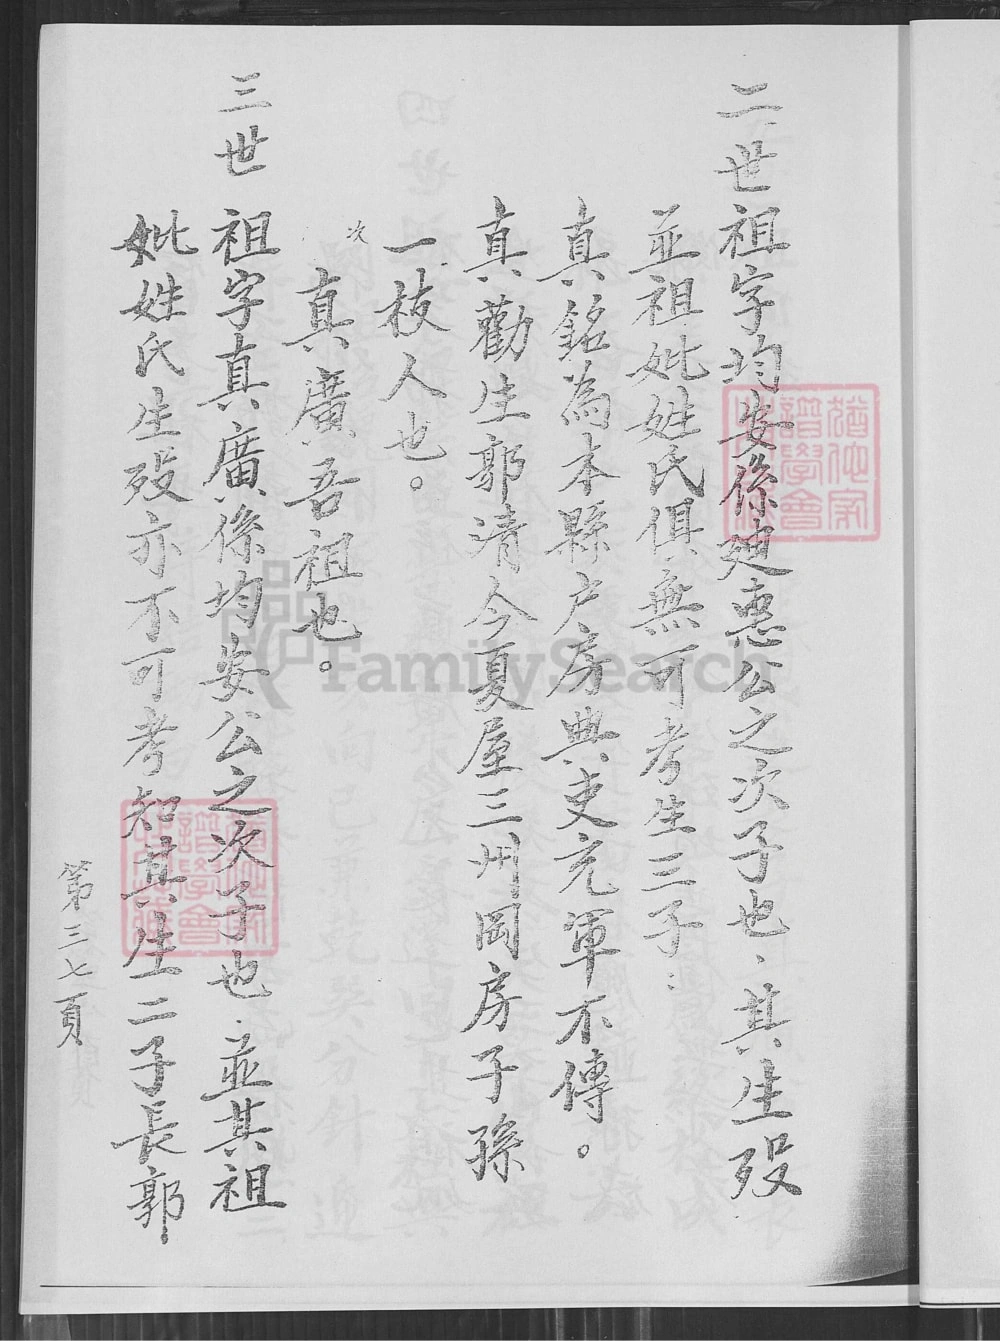 二世祖字均安係廸惠公之次子也、其生歿
並祖妣姓氏俱無可考生三子：
真銘為本縣户房典吏充軍不傳。
真勸生郭清今夏屋三州岡房子孫
一枝人也。
次
真廣吾祖也。
三世 祖字真廣係均安公之次子也、並其祖
妣姓氏生歿亦不可考知其生二子長郭
第三七頁
譜學會
譜學會
FamilySearch